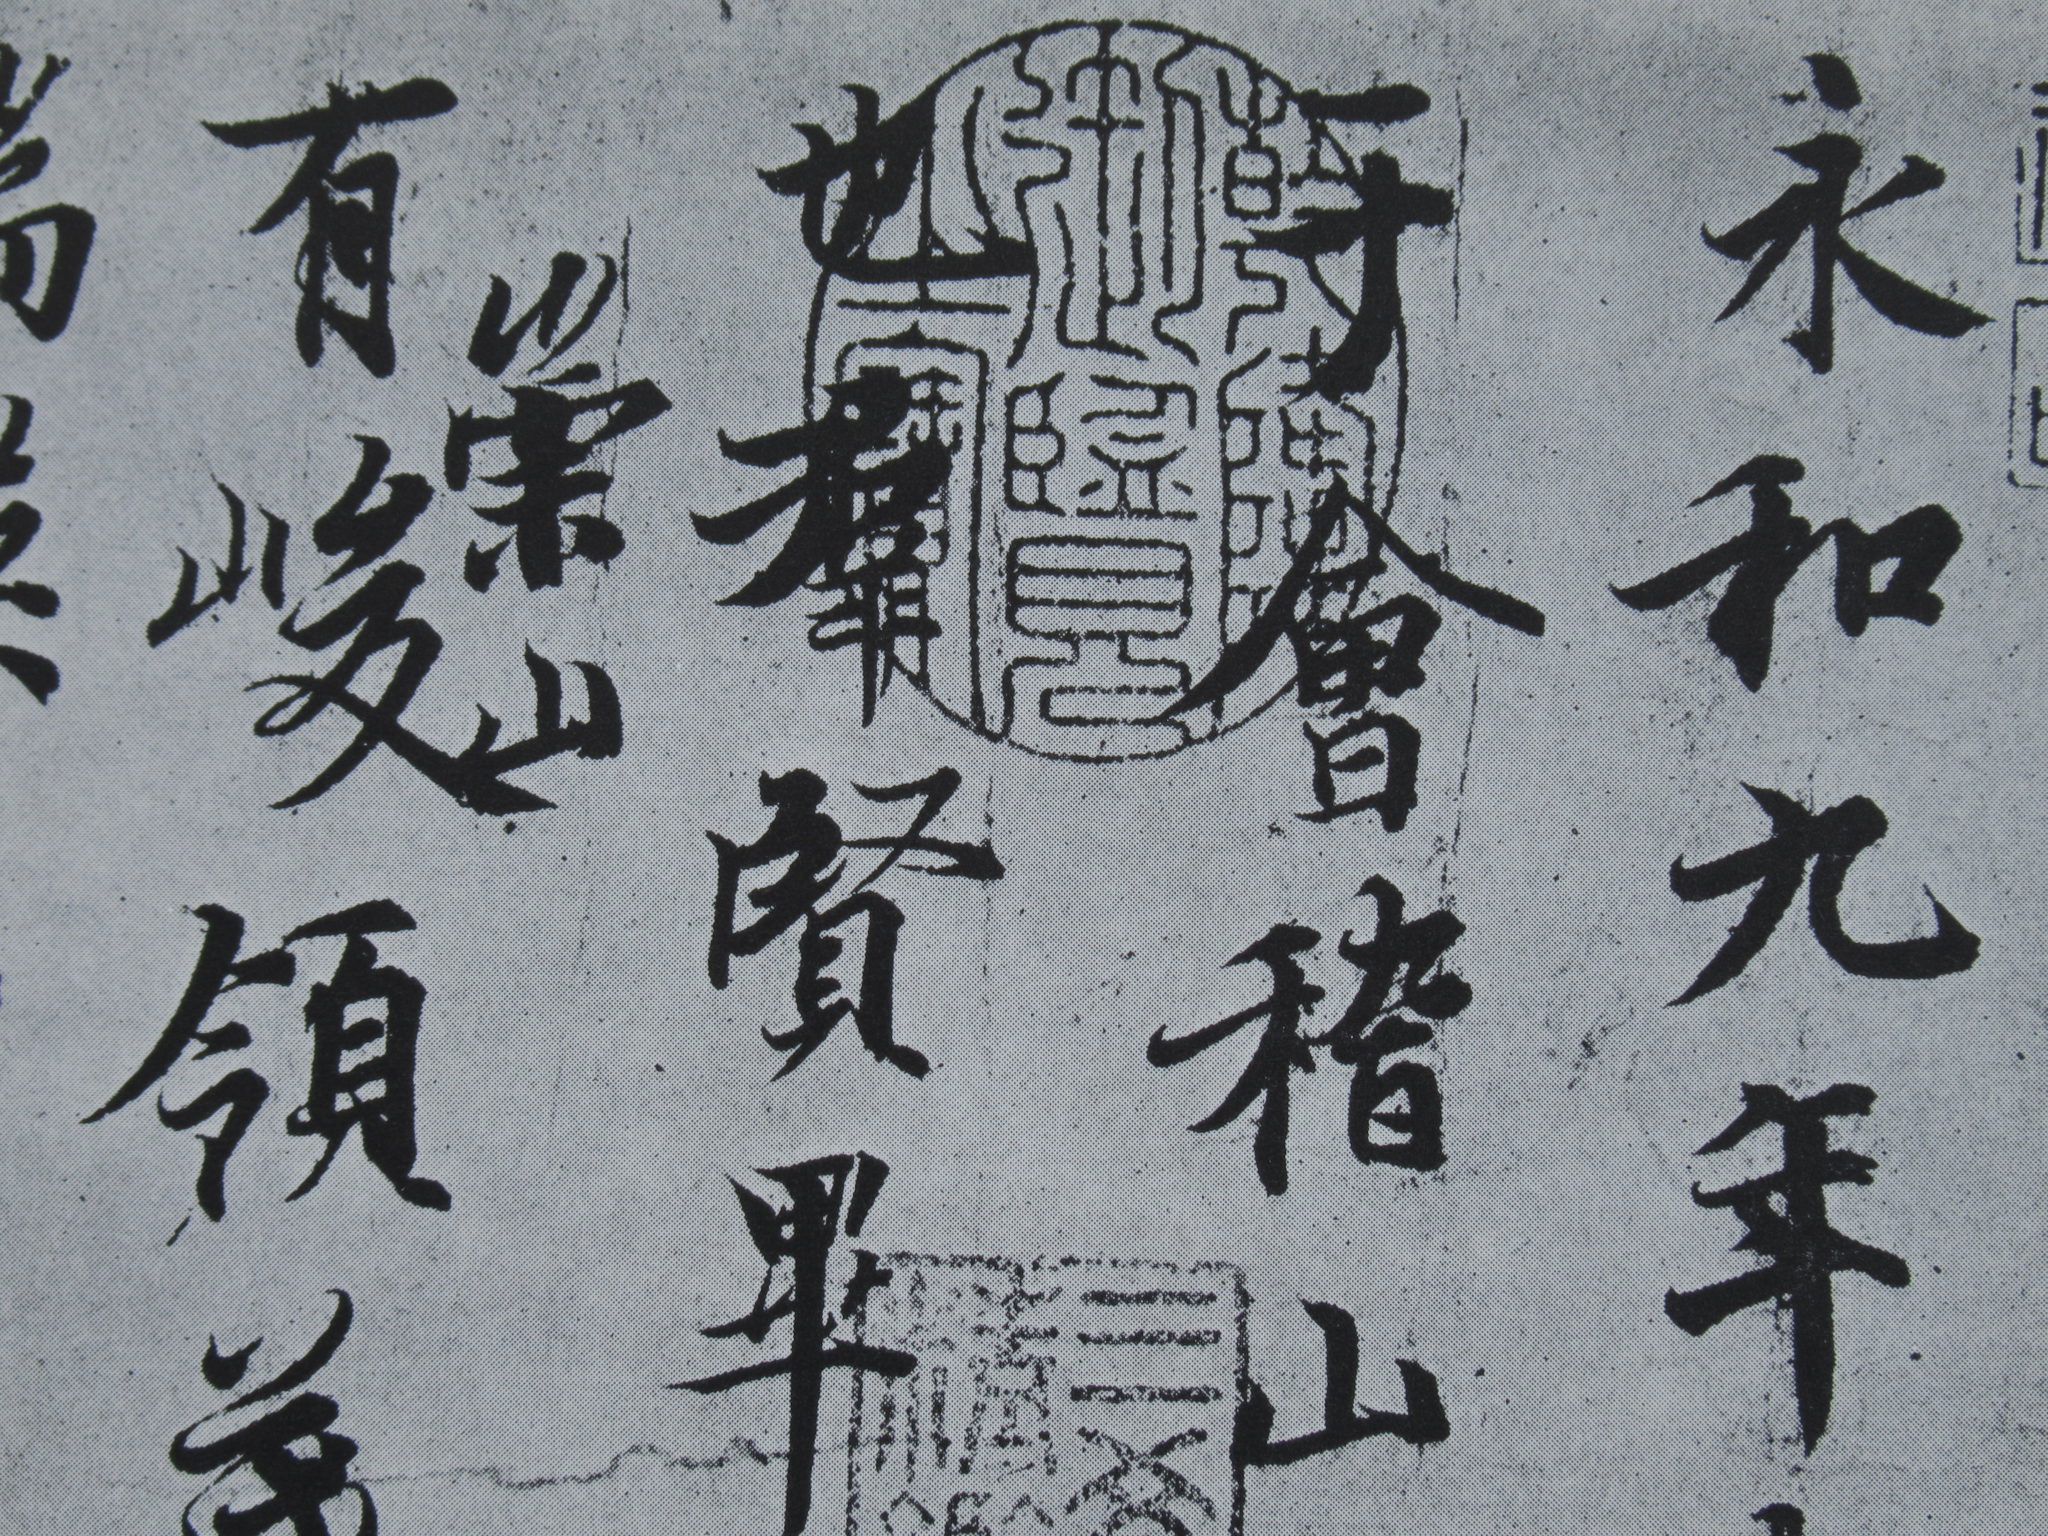 永和九年
于會稽山
也羣賢畢
崇山
有峻領茂
湍